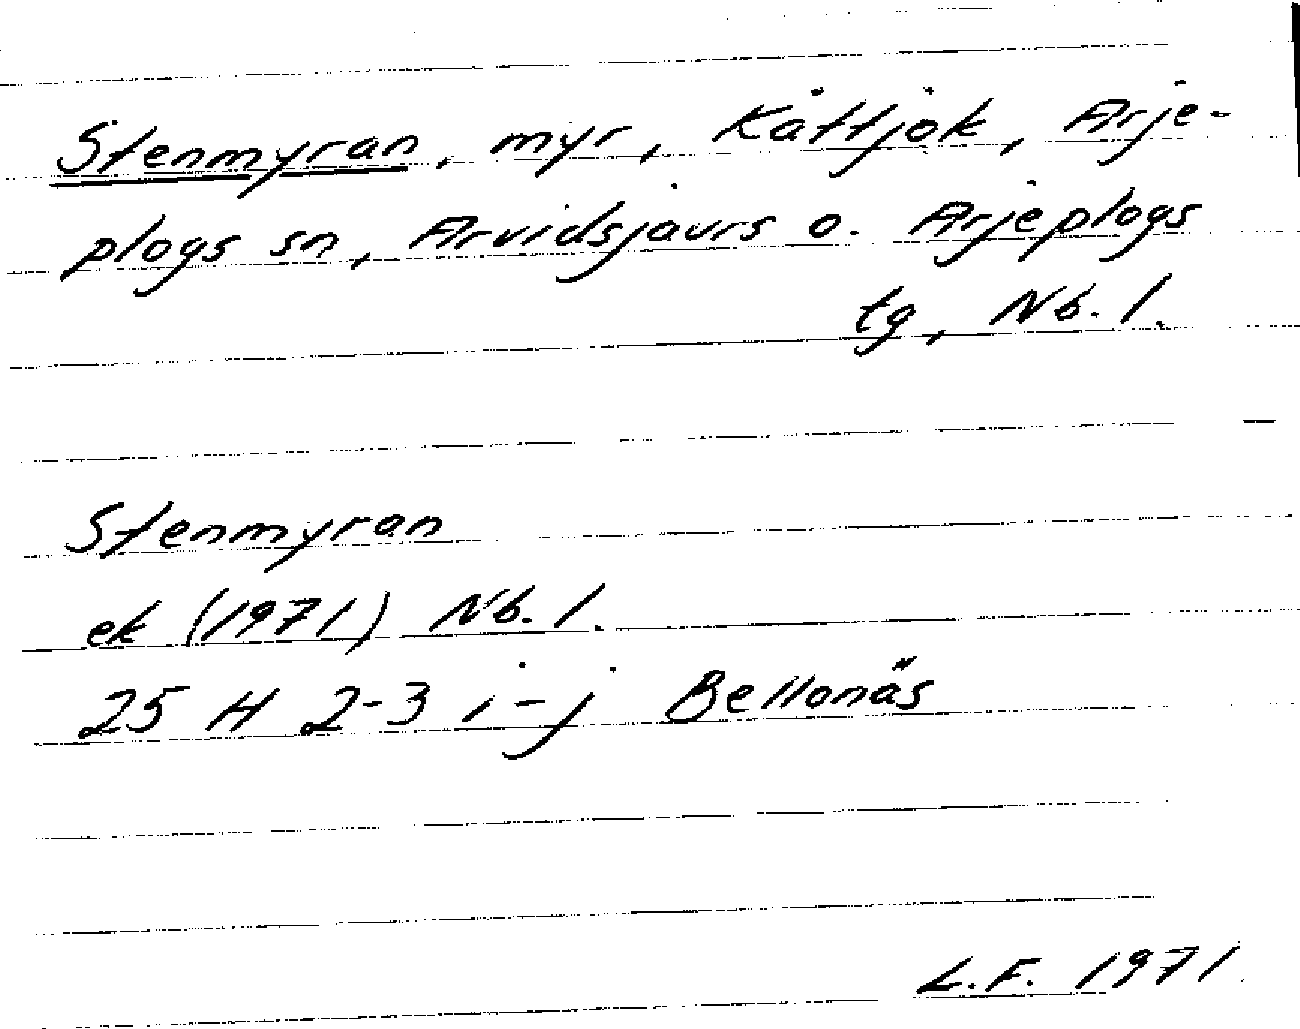 Stenmyran, myr, Kåttjok, Arje-
plogs sn, Arvidsjaurs o. Arjeplogs
tg, Nb. l.
Stenmyran
ek (1971) Nb. l.
25 H 2-3 i-j Bellonäs
L.F. 1971